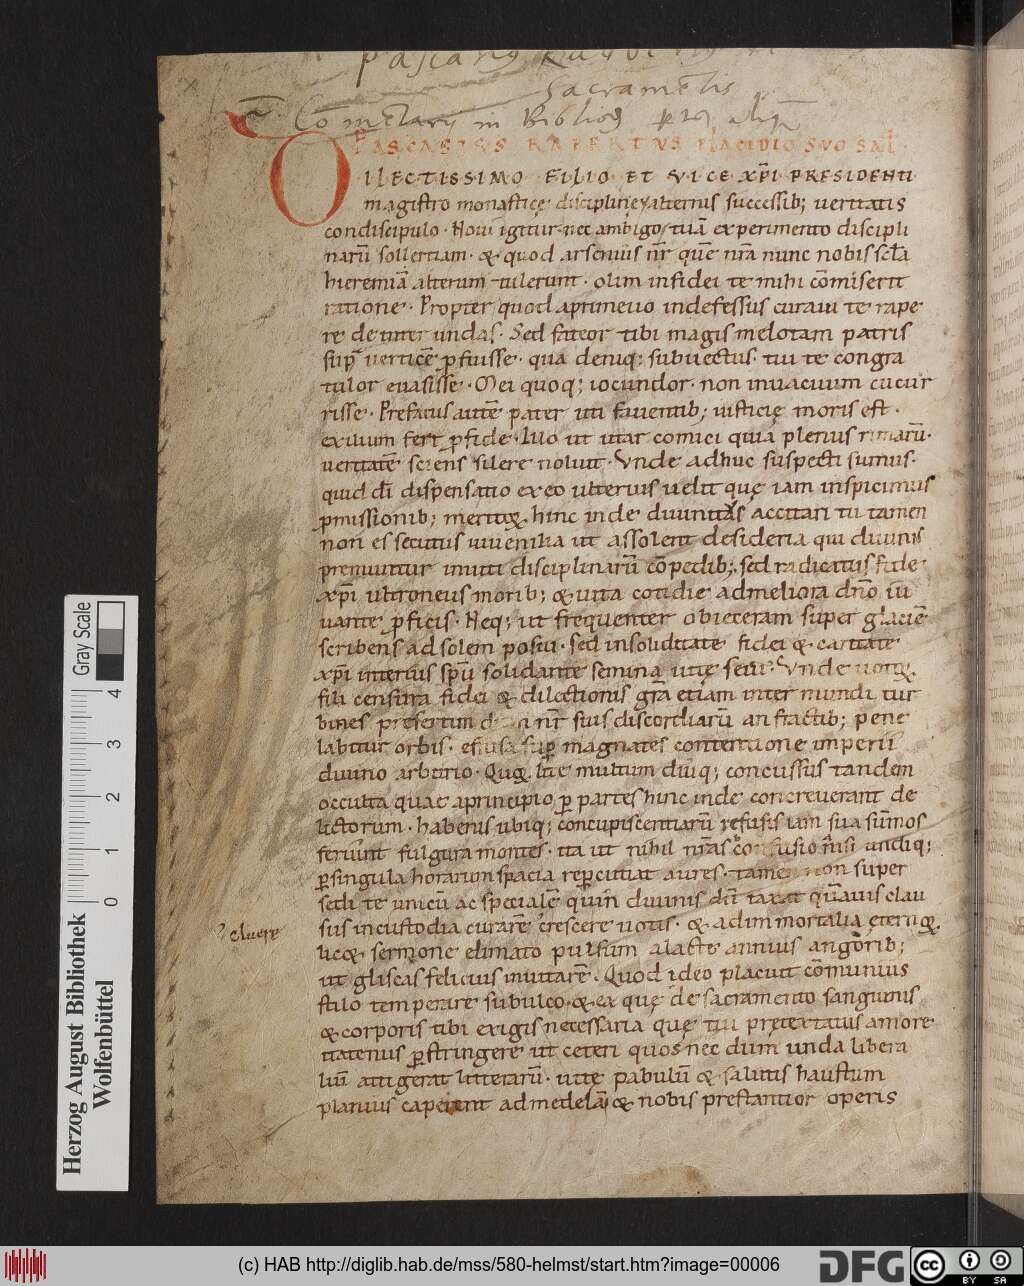 Pascasius
Sacrametis
Cometarij in Biblior
PASCASIVS RAPERTVS PLACIDIO SVO SAL.
DILECTISSIMO FILIO ET VICE XPI PRESIDENTI
magistro monasticę disciplinę alternis successib; ueritatis
condiscipulo. Noui igitur nec ambigo tuā experimento discipli
narū sollertiam. & quod arsenius nr̄ quē nr̄a nunc nobis sc̄la
hieremiā alterum tulerunt. olim in fidei te mihi cōmiserit
ratione. Propter quod aprimeuo indefessus curaui te rape
re de inter undas. Sed fateor tibi magis melotam patris
sup uerticē pfluisse. qua deniq; subuectus tu te congra
tulor euasisse. Mei quoq; iocundor. non inuacuum cucur
risse. Prefatus autē pater uti fauentib; iusticię moris est.
exilium fert p fide. Iuo ut utar comici quia plenus rimarū.
ueritatē sciens silere noluit. Vnde adhuc suspecti sumus.
quid dī dispensatio ex eo ulterius uelit quę iam inspicimus
pmissionib; meritiq. hinc inde diuinitas accitari tu tamen
non es secutus iuuenilia ut assolent desideria qui diuinis
premuntur inuiti disciplinarū cōpedib; sed radicatus fide
xp̄i ultroneus morib; & uita cotidie ad meliora dn̄o iu
uante pficis. Neq; ut frequenter obieceram super glaciē
scribens ad solem posui. sed in soliditate fidei & caritate
xp̄i interius sp̄u solidante semina uitę seui. Vnde uotiq
fili censura fidei & dilectionis gr̄a etiam inter mundi tur
bines presertim nr̄ suis discordiarū anfractib; pene
labitur orbis. effusa sup magnates contentione imperii
diuino arbitrio. Quq. lite multum diuq; concussus tandem
occulta quae aprincipio p partes hinc inde concreuerant de
lictorum. habenis ubiq; concupiscentiarū refusis iam sua sūmos
feriunt fulgura montes. ita ut nihil nr̄as confusionis undiq;
p singula horarum spacia repcutiat aures. tamen non super
sedi te unicū ac specialē quin diuinis dū taxat quāuis clau
sus in custodia curarē crescere notis. & ad inmortalia ęterniq.
lic& sermone elimato pulsum a lacte annuis angorib;
ut gliscas felicius inuitarē. Quod ideo placuit cōmunius
stilo temperare subulco. & ex quę de sacramento sanguinis
& corporis tibi exigis necessaria quę tui pretextatus amore
itatenus pstringere ut ceteri quos nec dum unda libera
liū attigerat litterarū. uitę pabulū & salutis haustum
planius caperent ad medelā & nobis prestantior operis
eluere
Gray Scale
0 1 2 3 4
Herzog August Bibliothek
Wolfenbüttel
(c) HAB http://diglib.hab.de/mss/580-helmst/start.htm?image=00006
DFG
cc
BY SA